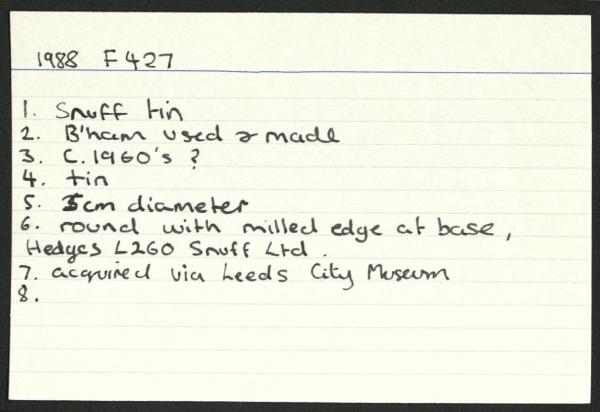 1988 F427
1. Snuff tin
2. B'ham used & made
3. C.1960's ?
4. tin
5. 5cm diameter
6. round with milled edge at base,
Hedges L260 Snuff Ltd.
7. acquired via Leeds City Museum
8.